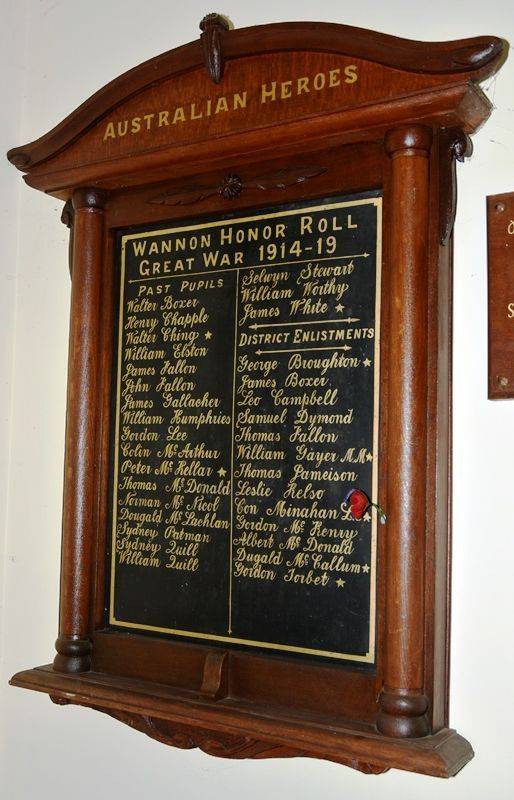 AUSTRALIAN HEROES
WANNON HONOR ROLL
GREAT WAR 1914-19
PAST PUPILS
Walter Boxer
Henry Chapple
Walter Ching ★
William Elston
James Fallon
John Fallon
James Gallacher
William Humphries
Gordon Lee
Colin McArthur
Peter McKellar ★
Thomas McDonald
Norman McNicol
Dougald McLachlan
Sydney Patman
Sydney Quill
William Quill
Selwyn Stewart
William Worthy
James White ★
DISTRICT ENLISTMENTS
George Broughton ★
James Boxer
Leo Campbell
Samuel Dymond
Thomas Fallon
William Gayer M.M ★
Thomas Jameison
Leslie Kelso
Con Minahan
Gordon McKenry
Albert McDonald
Dugald McCallum ★
Gordon Torbet ★